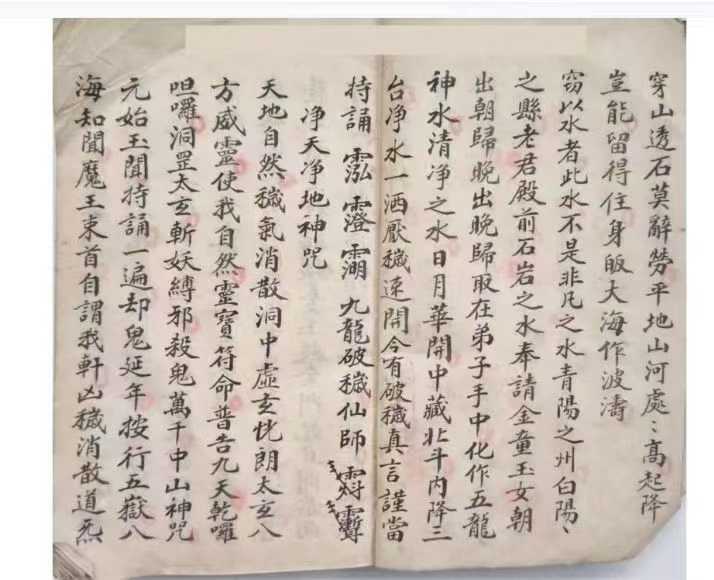 穿山透石莫辭勞平地山河處〻高起降
豈能留得住身皈大海作波濤
窃以水者此水不是非凡之水青陽之州白陽〻
之縣老君殿前石岩之水奉請金童玉女朝
出朝歸晚出晚歸取在弟子手中化作五龍
神水清净之水日月華開中藏北斗内降三
台净水一洒厭穢速開今有破穢真言謹當
持誦 霐 九龍破穢仙師
净天净地神咒
天地自然穢氣消散洞中虛玄恍朗太玄八
方威靈使我自然靈寶符命普告九天乾囉
呾囉洞罡太玄斬妖縛邪殺鬼萬千中山神咒
元始玉聞持誦一遍却鬼延年按行五嶽八
海知聞魔王束首自謂我軒凶穢消散道炁